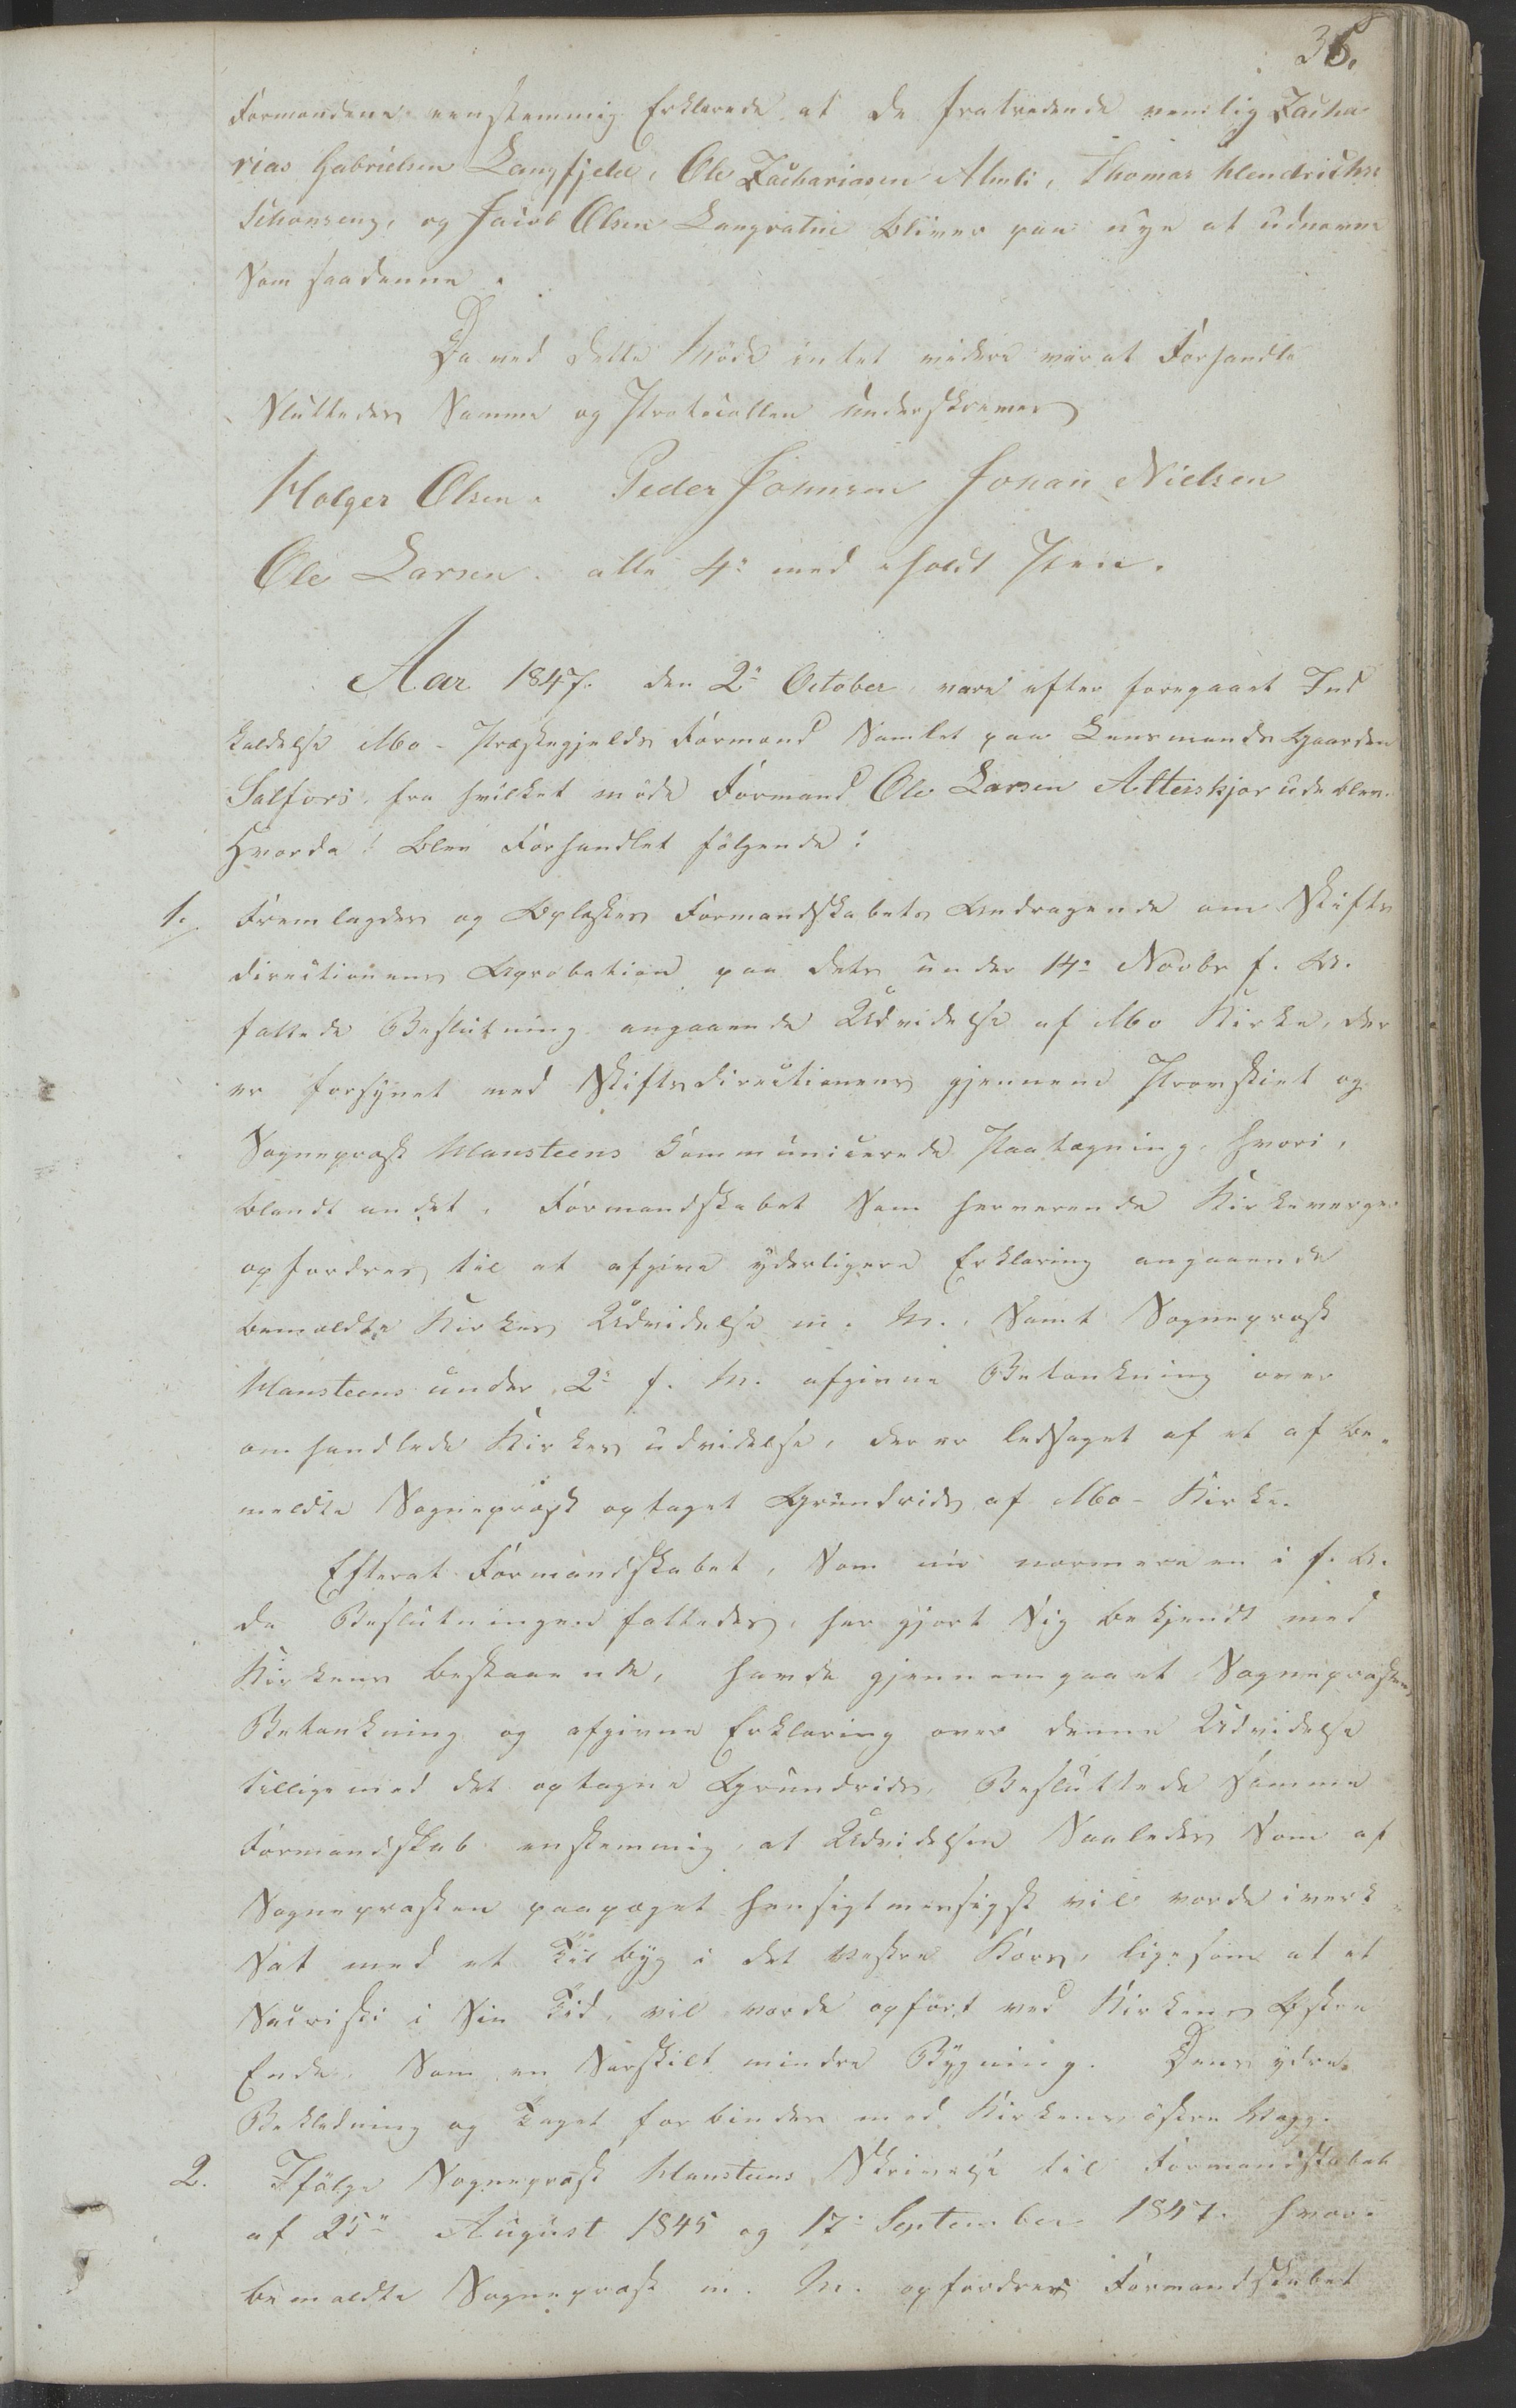 36.
Formændene eenstemmig Erklærede at de fratrædende nemlig Zacha
rias Gabrielsen Langfjeld, Ole Zachariasen Almli, Thomas Hendrichs:
Schonseng, og Jacob Olsen Langvatne bliver paa nye at udnævne
som saadanne.
Da ved dette Møde intet videre var at Forhandle
Sluttedes Samme og Protocollen underskreves
Holger Olsen. Peder Johnsen Johan Nielsen
Ole Larsen. alle 4: med iholdt Pen.
Aar 1847. den 2: October, vare efter foregaaet Ind
kaldelse Mo-Præstegjelds Formænd Samlet paa Lensmands Gaarden
Selfors, fra hvilket møde Formand Ole Larsen Alterskjær udeblev.
Hvorda! blev Forhandlet følgende:
1. Fremlagdes og Oplæstes Formandskabets Andragende om Stifts
directionens Aprobation paa dets under 14: Novbr f. A.
fattede Beslutning angaaende Udvidelse af Mo Kirke, der
er forsynet med Stiftsdirectionens gjennem Provstiet og
Sognepræst Hansteens Communicerede Paategning, hvori,
blandt andet, Formandskabet Som herværende Kirkeverger
opfordres til at afgive yderligere Erklæring angaaende
bemældte Kirkes Udvidelse m. M., Samt Sognepræst
Hansteens under 2: f. M. afgivne Betænkning over
omhandlede Kirkes udvidelse, der er ledsaget af et af be-
meldte Sognepræst optaget Grundrids af Mo-Kirke.
Efterat Formandskabet, Som nu nærmere en i f. A.
da Beslutningen fattedes, har gjort Sig bekjendt med
Kirkens bestaaende, havde gjennemgaaet Sognepræstens
Betænkning og afgivne Erklæring over denne Udvidelse
tilligemed det optagne Grundrids, Besluttede Samme
Formandskab enstemmig, at Udvidelsen Saaledes Som af
Sognepræsten paapeget hensigtmæssigst vil vorde iverk
Sat med et Tilbyg i det vestre Kors, ligesom at et
Sacristi i Sin Tid, vil vorde opført ved Kirkens Østre
Ende, Som en Særskilt mindre Bygning. Dens ydre
Beklædning og Taget forbindes med Kirkens østre Væg.
2. Ifølge Sognepræst Hansteens Skrivelse til Formandskabet
af 25: August 1845 og 17: September 1847. hvor-
bemældte Sognepræst m. M. opfordrer Formandskabet